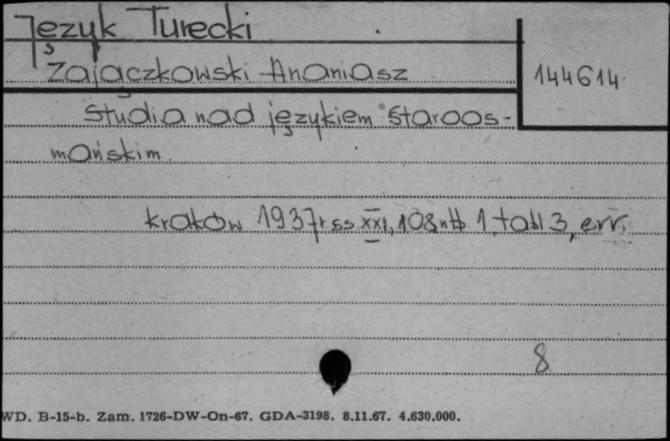 Język Turecki
Zajączkowski Ananiasz
144614
Studia nad językiem staroos-
mańskim.
Kraków 1937r. ss XXI, 108 nlb 1, tabl 3, err.
8
WD. B-15-b. Zam. 1726-DW-On-67. GDA-3198. 8.11.67. 4.630.000.